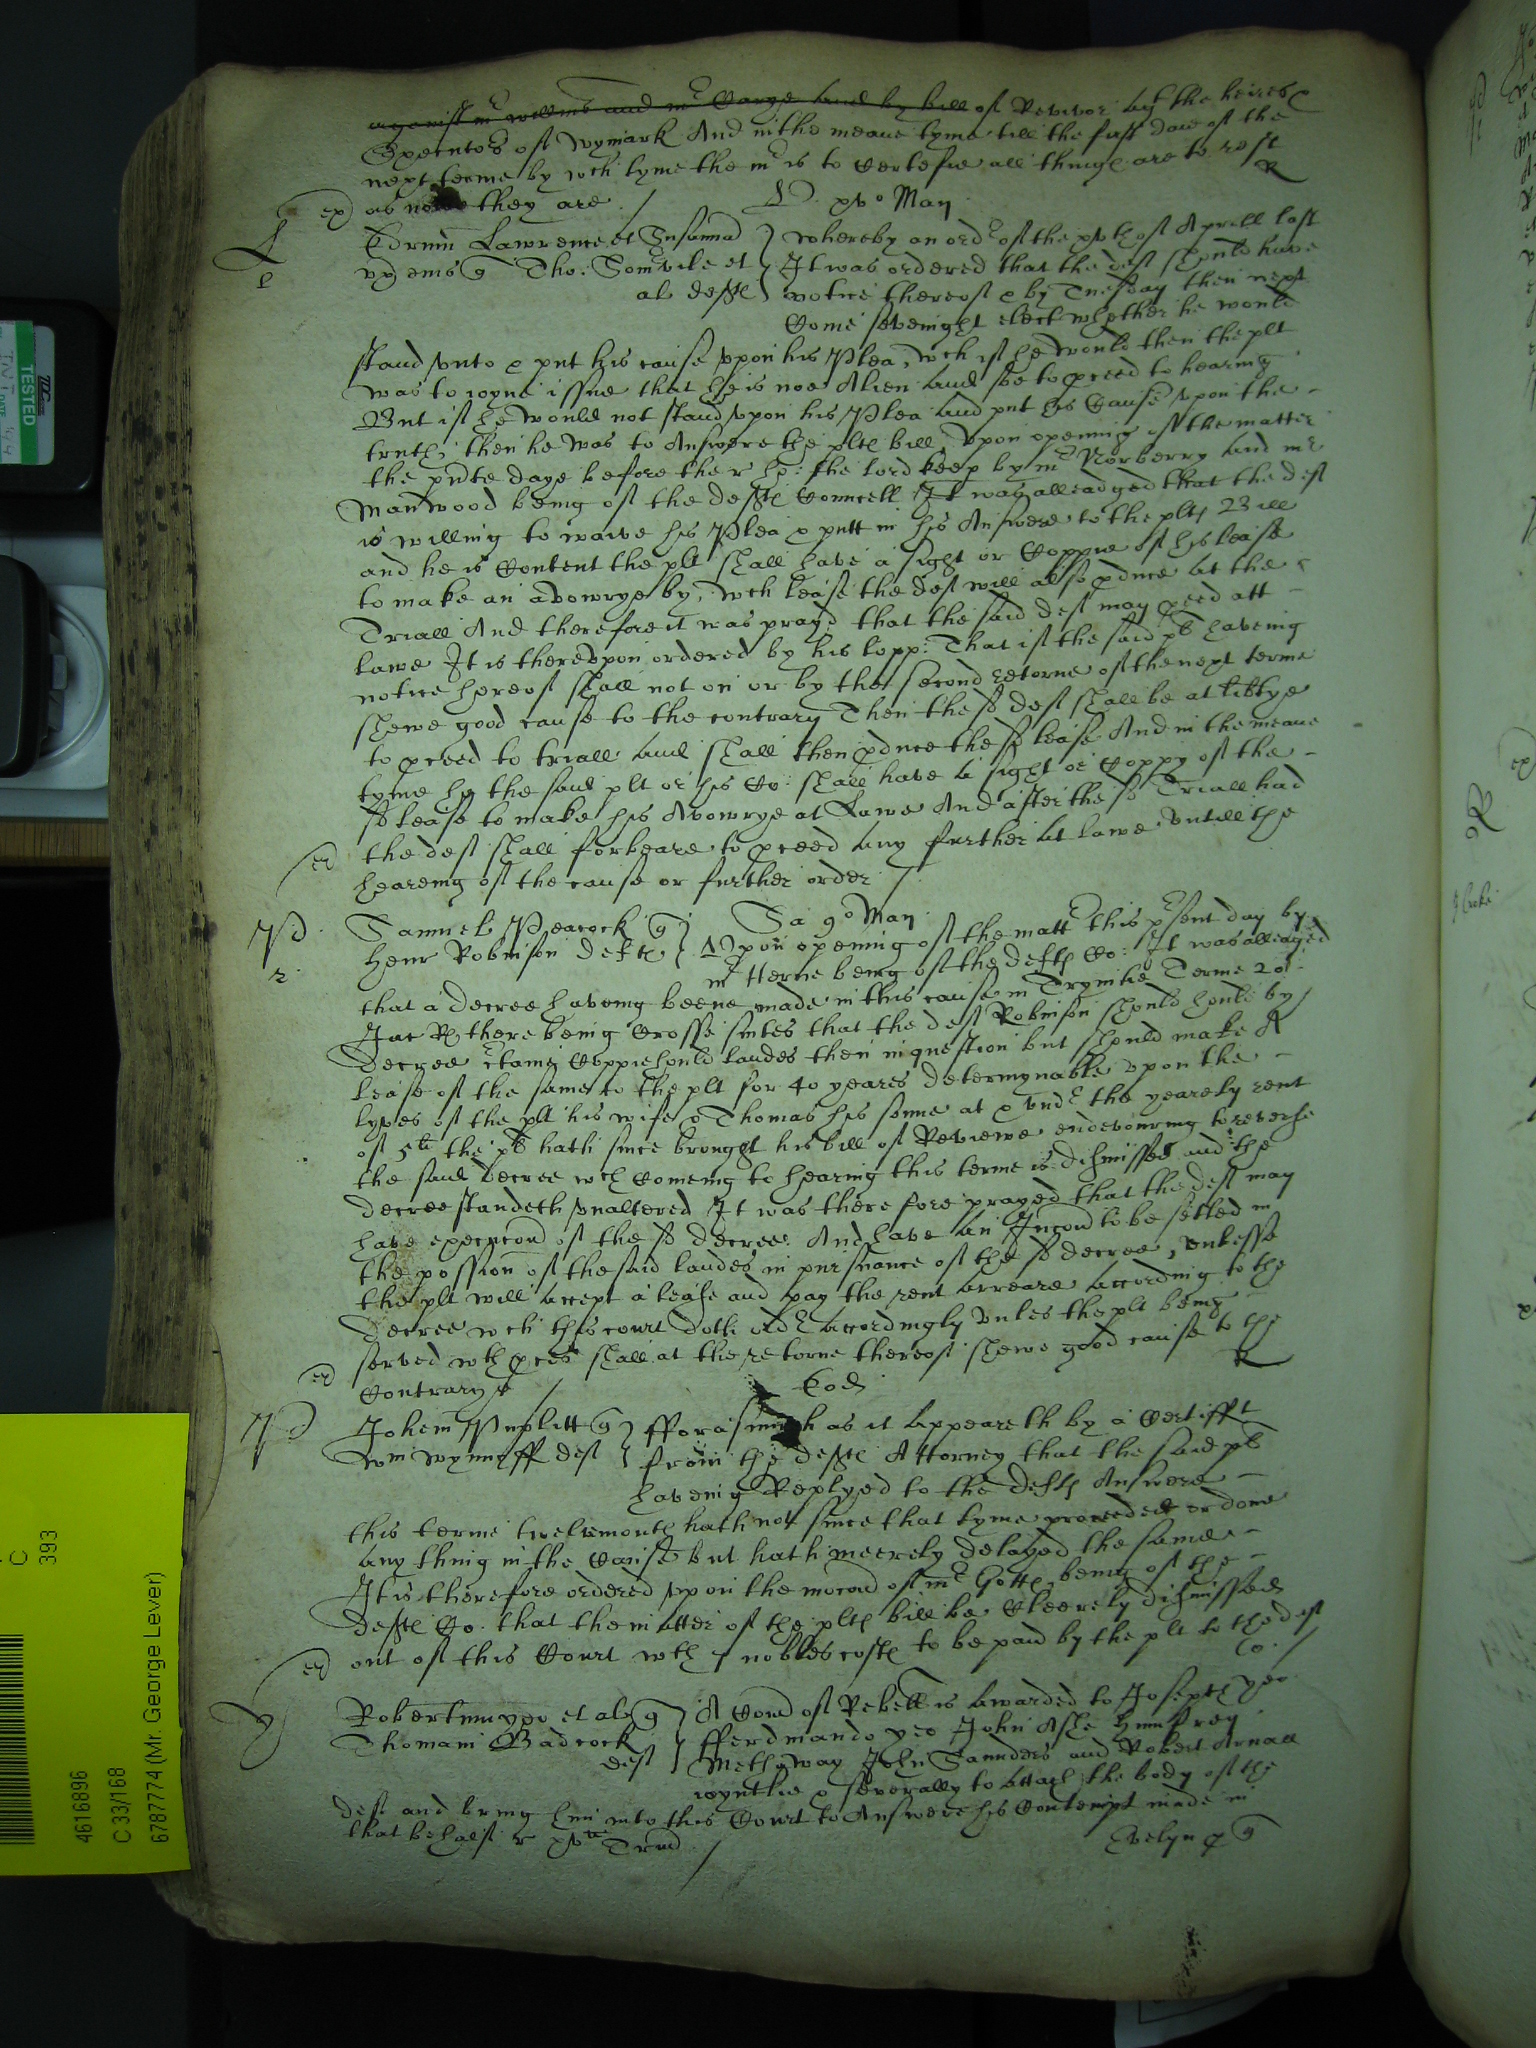 against mr Willms and mr Carye and by bill of Revivor by the heires &
Executors of Wymark And in the meane tyme till the first daie of the
next terme by wch tyme the mr is to Certefie all things are to rest
ex as nowe they are / R
L xvo Maij
Edrum Lawrence et Susanna
ux eius q Tho: Somvile et
al defts
whereby an ordr of the xvth of Aprill last
It was ordered that the deft should have
notice thereof & by Tuesday then next
Come sevenight elect whether he would
stand unto & put his cause uppon his Plea, wch if he would then the plt
was to ioyne issue that he is noe Alien and soe to pceed to hearing
But if he would not stand uppon his Plea and put his Cause upon the
truth, then he was to Answere the plts bill, Upon opening of the matter
the pnte daye before the r ho: the lord keep by mr Norberry and mr
Manwood being of the defts Councell It was alleadged that the deft
is willing to waive his Plea & putt in his Answere to the plts Bill
and he is Content the plt shall have a sight or Coppie of his lease
to make an avowrye by, wch lease the deft will also pduce at the
Triall And therefore it was prayd that the said deft may pceed att
lawe It is thereupon ordered by his lopp: That if the said plt haveing
notice hereof shall not on or by the second retorne of the next terme
shewe good cause to the contrary Then the sd deft shall be at libtye
to pceed to triall and shall then pduce the sd lease And in the meane
tyme he the said plt or his Co: shall have a sight or Coppy of the
sd lease to make his Avowrye at Lawe And after the sd Triall had
the deft shall forbeare to pceed any further at lawe untill the
ex heareing of the cause or further order /
Pd
r
Samuel Peacock q
Henr Robinson deft
Sa 9o Maij
Upon opening of the mattr this psent day by
mr Herne being of the defts Co: It was alleaged
that a decree haveing beene made in this cause in Trynitie Terme 20
Jac R there being Crosse suites that the deft Robinson should hould by
decree ctaine Coppiehould landes then in question but should make A
lease of the same to the plt for 40 yeares determynable upon the
lyves of the plt his wife & Thomas his sonne at & undr the yearely rent
of 5li the plt hath since brought his bill of Reviewe endevouring to reverse
the said decree wch Comeing to hearing this terme is dismissed and the
decree standeth unaltered It was therefore prayed that the deft may
have execucond of the sd decree And have an Iniuncon to be setled in
the possion of the said landes in pursuance of the sd decree, unlesse
the plt will accept a lease and pay the rent arreare according to the
decree wch this court doth ordr accordingly unles the plt being
served wth pces shall at the retorne thereof shewe good cause to the
ex Contrary / R
Eod
Pd
Johem Puplett q
Wm Wynniff deft
fforasmuch as it appeareth by a Certifft
from the defts Attorney that the said plt
haveing Replyed to the defts Answere
this terme twelvemonth hath not since that tyme proceeded or done
any thing in the Cause but hath meerely delayed the same
It is therefore ordered upon the mocond of mr Gotts being of the
defts Co. that the matter of the plts bill be Cleerely dismissed
ex out of this Court wth nobles costs to be paid by the plt to the deft
Co. /
Y
Robertum yeo et al q
Thomam Badcock
deft
A Comd of Rebell is awarded to Joseph yeo
fferdinando yeo John Ashe Humfrey
Methway John Saunders and Robert Arnall
ioyntlie & severally to attach the body of the
deft and bring him into this Court to Answere his Contempt made in
that behalf r xvne Trind / Evelyn p q
TESTED
DATE
C
393
4616896
C 33/168
6787774 (Mr. George Lever)